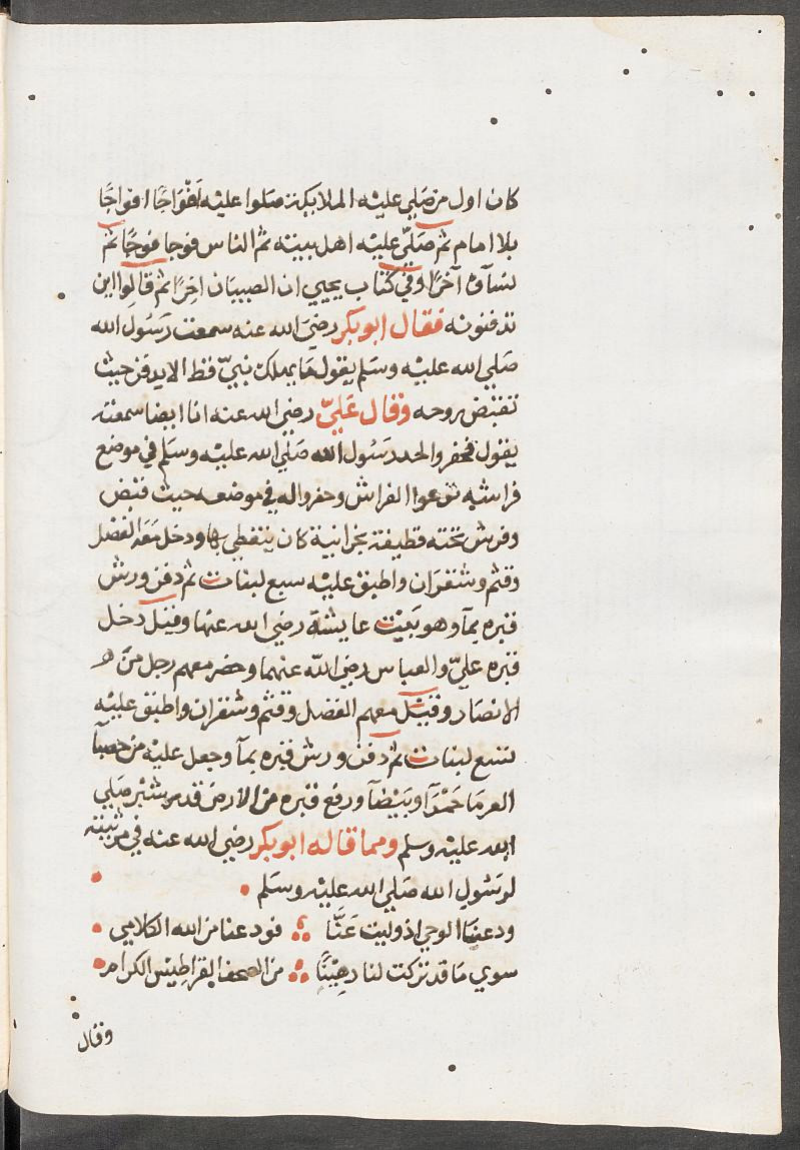 كان اول من صَلي عليْه الملايكة صَلوا عليْه اَفْوَاجًا افواجًا
بلا امام ثم صَلّي عليْه اهل بيته ثم الناس فوجا فوجًا ثم
نسآؤه آخرًا وفي كتاب يحيي ان الصبيان اخِرًا ثم قالوا اين
تدفنونه فقال ابوبكر رضيَ الله عنه سمعت رَسُول الله
صَلي الله عليْه وسَلم يقول مَا هلك نبيّ قط الا يدفن حيث
تقبض روحه وقال عَليّ رضي الله عنه انا ايضا سمعته
يقول فحفر والحد رسُول الله صَلي الله عليْه وسَلم في موضع
فراشه نزعوا الفراش وحفروا له في موضعه حيث قبض
وفرش تحته قطيفة نجرانية كان يتغطي بها ودخل معَه الفضل
وقثم وشقران واطبق عليْه سبع لبنات ثم دفن ورش
قبره بمآ وهو بَيْت عايشة رضي الله عنها وقيْل دخل
قبره عليّ والعباس رضي الله عنهما وحضر معهم رجل من
الانصَار وقيْل معهم الفضل وقثم وشقران واطبق عليْه
تسع لبنات ثم دفن ورش قبره بمآ وجعل عليْه من حصبآ
العرصَا حَمْرَآ وبَيْضَآ ورفع قبره من الارض قدر شبْر صَلي
الله عليْه وسلم ومما قاله ابوبكر رضي الله عنه في مرثيته
لرسُول الله صَلي الله عليْه وسَلم
ودعنا الوحي اذ وليت عَنَّا فودعنا من الله الكلامي
سوي مَا قد تركت لنا رهِيْنًا من الصحف القراطِيْس الكرام
وقال